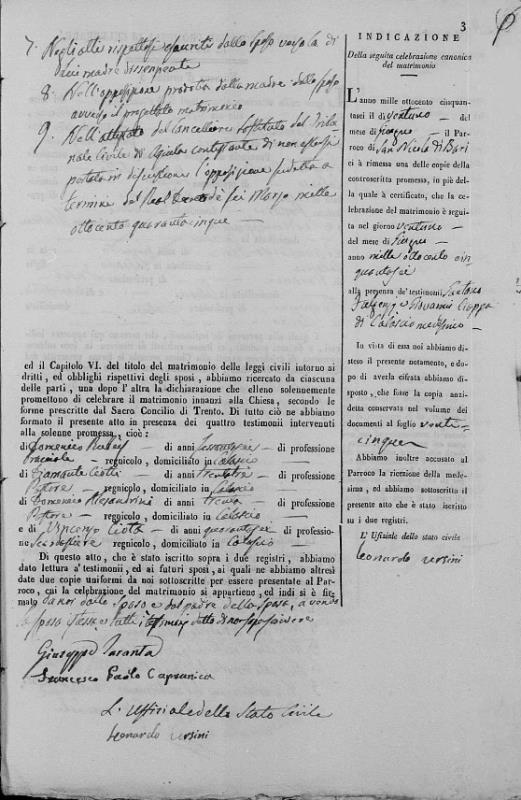 3
7. Negli atti rispettosi eseguiti dallo sposo verso la di
lui madre dissenziente
8. Nell'opposizione prodotta dalla madre dello sposo
avverso il progettato matrimonio
9. Nell' del Cancelliere sostituto del Tribu
nale Civile di Aquila di non essersi
portata in discussione l'opposizione sudetta a
termine del Real de' sei Marzo mille
ottocento quarantacinque —
ed il Capitolo VI. del titolo del matrimonio delle leggi civili intorno ai
dritti, ed obblighi rispettivi degli sposi, abbiamo ricercato da ciascuna
delle parti, una dopo l'altra la dichiarazione che elleno solennemente
promettono di celebrare il matrimonio innanzi alla Chiesa, secondo le
forme prescritte dal Sacro Concilio di Trento. Di tutto ciò ne abbiamo
formato il presente atto in presenza dei quattro testimoni intervenuti
alla solenne promessa, cioè:
di Domenico — di anni — di professione
— regnicolo, domiciliato in Calascio
di Ciotti — di anni — di professione
— regnicolo, domiciliato in Calascio
di Domenico Alesandrini — di anni — di professione
— regnicolo, domiciliato in Calascio
e di Vincenzo Ciotti — di anni quarantasei — di professio-
ne regnicolo, domiciliato in Calascio —
Di questo atto, che è stato iscritto sopra i due registri, abbiamo
dato lettura a' testimonii, ed ai futuri sposi, ai quali ne abbiamo altresì
date due copie uniformi da noi sottoscritte per essere presentate al Par-
roco, cui la celebrazione del matrimonio si appartiene, ed indi si è fir-
mato da noi dallo sposo e dal padre della sposa, avendo
la sposa stessa e tutti i testimonj detto di non saper scrivere
Giuseppe Taranta
Francesco Paolo Capranica
L'Uffiziale dello Stato Civile
Leonardo Ursini
INDICAZIONE
Della seguita celebrazione canonica
del matrimonio
L'anno mille ottocento cinquan-
tasei il dì ventuno — del
mese di Giugno — il Par-
roco di San Nicola di Bari
ci à rimessa una delle copie della
controscritta promessa, in piè del-
la quale à certificato, che la ce-
lebrazione del matrimonio è segui-
ta nel giorno ventuno —
del mese di Giugno —
anno mille ottocento cin
quantasei
alla presenza de' testimonii
e Giovanni
di Calascio medesimo —
In vista di essa noi abbiamo di-
steso il presente notamento, e do-
po di averla cifrata abbiamo di-
sposto, che fosse la copia anzi-
detta conservata nel volume dei
documenti al foglio venti-
cinque
Abbiamo inoltre accusato al
Parroco la ricezione della mede-
sima, ed abbiamo sottoscritto il
presente atto che è stato iscritto
su i due registri.
L' Uffiziale dello stato civile
Leonardo Ursini